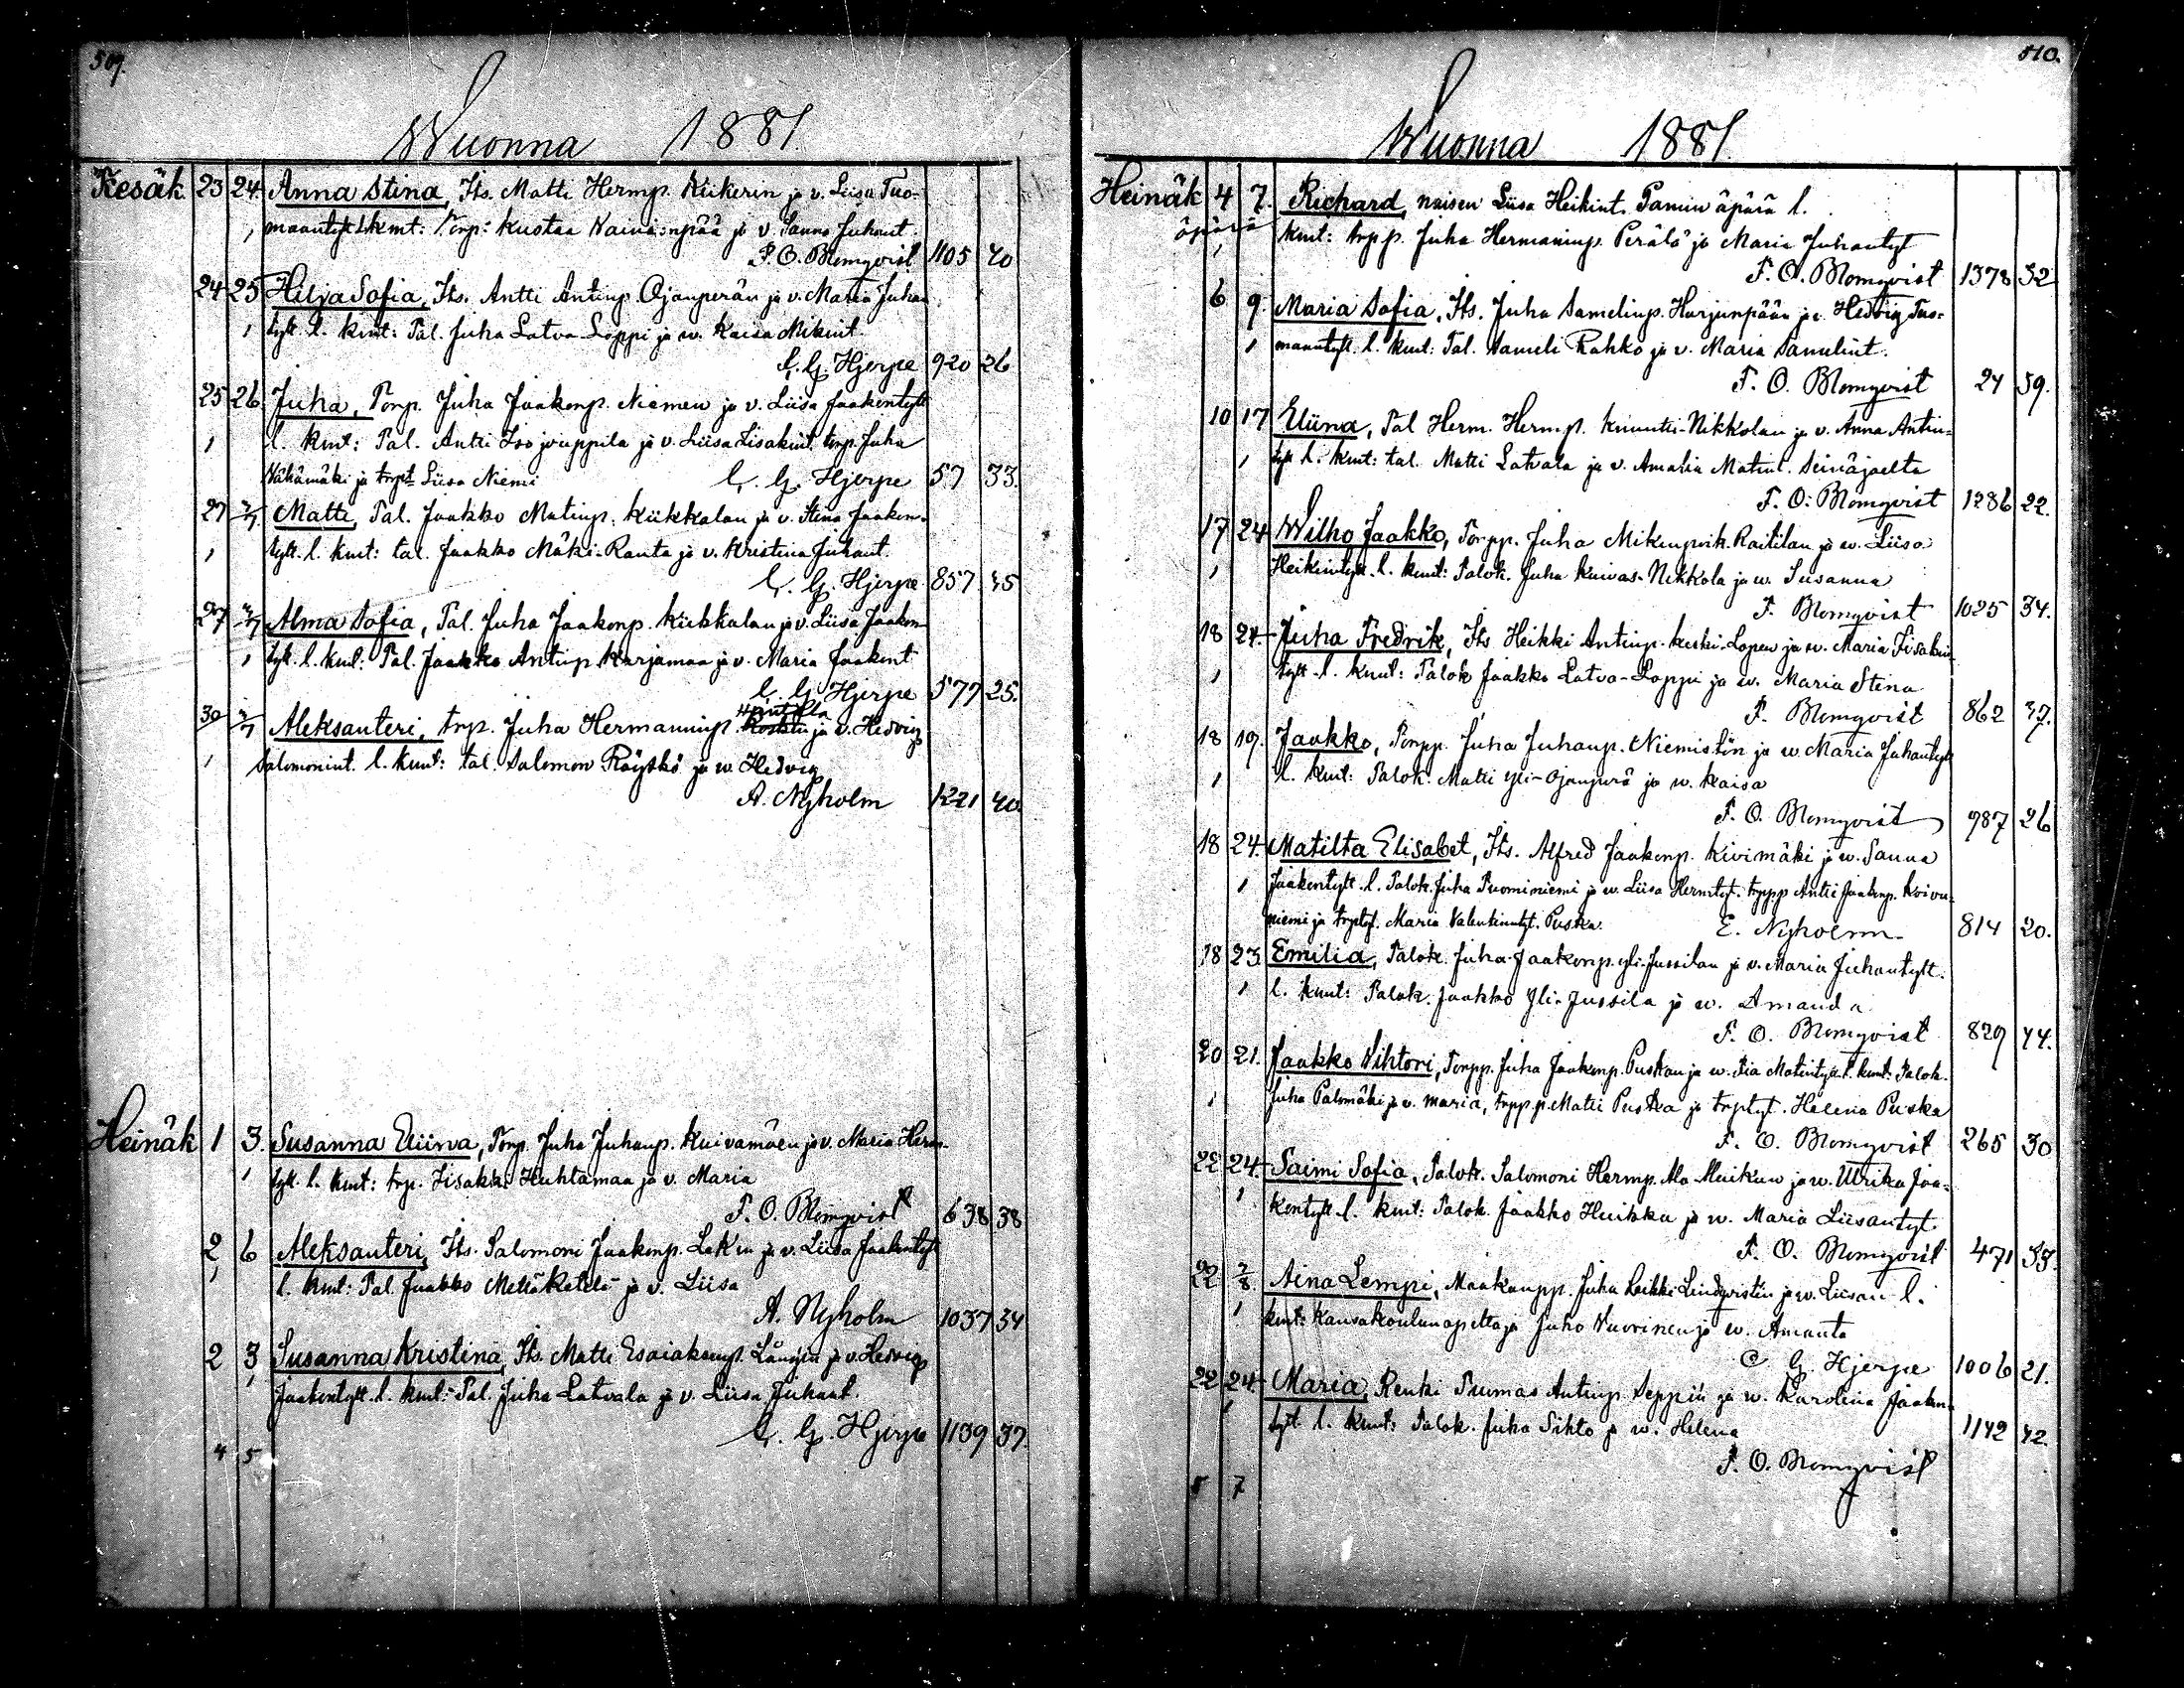 509.
Wuonna 1881
Kesäk. 23 24. Anna Stina, Its. Matti Hermp. Kiikerin ja v. Liisa Tuo-
maantytt. l. kmt: Torp: Kustaa Wainionpää ja v. Sanna Juhant.
F. O. Blomqvist 1105 40
24 25 Hilja Sofia, Its. Antti Antinp. Ojanperän ja v. Maria Juhan
tytt. l. kmt: Tal. Juha Latva-Loppi ja w. Kaisa Mikint.
C. G. Hjerpe 920 26
25 26 Juha, Torp. Juha Jaakonp. Niemen ja v. Liisa Jaakontytt
l. kmt: Tal. Antti Isojouppila ja v. Liisa Iisakint. torp. Juha
Wähämäki ja trpt. Liisa Niemi C. G. Hjerpe 57 33.
27 3/7 Matti, Tal. Jaakko Matinp. Kiikkalan ja v. Stina Jaakon-
tytt. l. kmt: tal. Jaakko Mäki-Ranta ja v. Kristina Juhant.
C. G. Hjerpe 857 45
27 3/7 Alma Sofia, Tal. Juha Jaakonp. Kiikkalan ja v. Liisa Jaakon-
tytt. l. kmt: Tal. Jaakko Antinp. Karjamaa ja v. Maria Jaakont.
C. G. Hjerpe 577 25.
30 3/7 Aleksanteri, trp. Juha Hermanninp. ja v. Hedvig
Salomonint. l. kmt: tal. Salomon Röyskö ja w. Hedvig
A. Nyholm 1221 40.
Heinäk 1 3. Susanna Eliina, Torp. Juha Juhanp. Kuivamäen ja v. Maria Herm-
tytt. l. kmt: trp. Iisakki Huhtamaa ja v. Maria
F. O. Blomqvist 638 38
2 6 Aleksanteri, Its. Salomoni Jaakonp. ja v. Liisa Jaakontytt
l. kmt: Tal. Jaakko Mettäketelä ja v. Liisa
A. Nyholm 1037 34
2 3 Susanna Kristina, Its. Matti Esaiaksenp. Långin ja v. Hedvig
Jaakontytt. l. kmt: Tal. Juha Latvala ja v. Liisa Juhant.
C. G. Hjerpe 1139 37.
4 5
510.
Wuonna 1881.
Heinäk 4 7. Richard, naisen Liisa Heikint. Pannin äpärä l.
äpärä kmt: trp.p. Juha Hermaninp. Perälä ja Maria Juhantyt
F. O. Blomqvist 1378 32
6 9. Maria Sofia, Its. Juha Samelinp. Harjunpään ja v. Hedvig Tuo-
maantytt. l. kmt: Tal. Sameli Rahko ja v. Maria Samelint.
F. O. Blomqvist 24 39.
10 17 Eliina, Tal Herm. Hermp. Knuutti-Nikkolan ja v. Anna Antin-
tytt l. kmt: tal. Matti Latvala ja v. Amalia Matint. Seinäjoelta
F. O. Blomqvist 1286 22.
17 24 Wilho Jaakko, Torpp. Juha Mikinpoik. Raitilan ja w. Liisa
Heikintytt. l. kmt: Talok. Juha Kuivas-Nikkola ja w. Susanna
F. Blomqvist 1025 34.
18 24. Juha Fredrik, Its Heikki Antinp. Keski-Lopen ja w. Maria Iisakin-
tytt. l. kmt: Talok Jaakko Latva-Loppi ja w. Maria Stina
F. Blomqvist 862 37.
18 19. Jaakko, Torpp. Juha Juhanp. Niemistön ja w. Maria Juhantytt
l. kmt: Talok. Matti Yli-Ojanperä ja w. Kaisa
F. O. Blomqvist 987 26
18 24. Matilta Elisabet, Its. Alfred Jaakonp. Kivimäki ja w. Sanna
Jaakontytt. l. Talok. Juha Tuominiemi ja w. Liisa Hermtyt. trpp.p Antti Jaakonp. Koivu-
niemi ja trptyt. Maria Valentinintyt. Puska. E. Nyholm 814 20.
18 23. Emilia, Talok. Juha Jaakonp. Yli-Jussilan ja v. Maria Juhantytt.
l. kmt: Talok. Jaakko Yli-Jussila ja w. Amanda
F. O. Blomqvist 829 44.
20 21. Jaakko Vihtori, Torpp. Juha Jaakonp. Puskan ja w. Matintytt. l. kmt: Talok.
Juha Palomäki ja v. Maria, trpp.p. Matti Puska ja trptyt. Helena Puska
F. O. Blomqvist 265 30
22 24. Saimi Sofia, Talok. Salomoni Hermp. Ala-Muikun ja w. Ulrika Jaa-
kontytt. l. kmt: Talok. Jaakko Huikku ja w. Maria Liisantyt.
F. O. Blomqvist 471 35.
22 7/8. Aina Lempi, Maakaupp. Juha Heikki Lindqvistin ja w. Liisan l.
kmt: Kansakoulunopettaja Juho Vuorinen ja w. Amanta
C. G. Hjerpe 1006 21.
22 24. Maria, Renki Tuomas Antinp. Seppin ja w. Karolina Jaakon-
tytt l. kmt: Talok. Juha Sihto ja w. Helena 1142 42.
F. O. Blomqvist
5 7